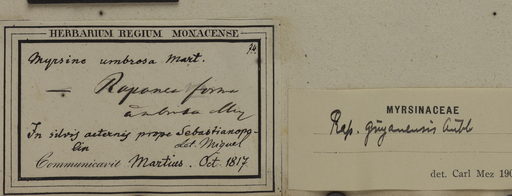 HERBARIUM REGIUM MONACENSE
74
Myrsine umbrosa Mart.
— Rapanea forma
umbrosa Mez
In silvis aeternis prope Sebastianop-
lin det. Miquel
Communicavit Martius. Oct. 1817
MYRSINACEAE
Rap. guyanensis Aubl
det. Carl Mez 190